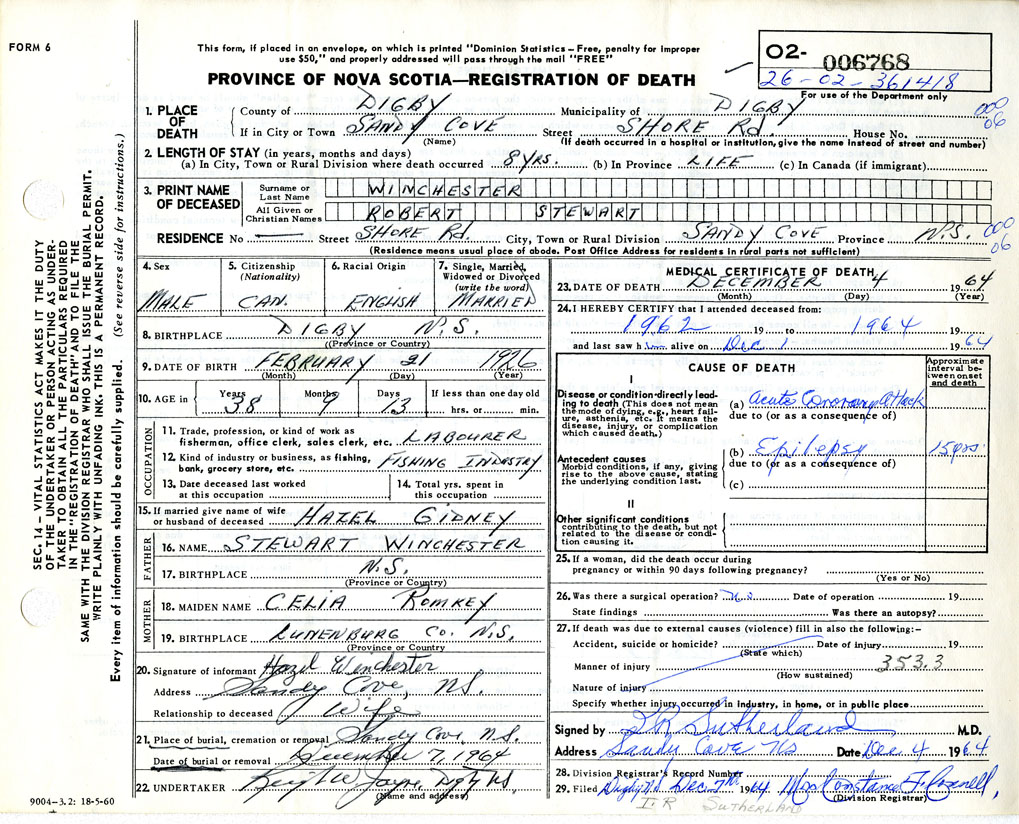 FORM 6
This form, if placed in an envelope, on which is printed "Dominion Statistics – Free, penalty for improper
use $50," and properly addressed will pass through the mail "FREE"
PROVINCE OF NOVA SCOTIA—REGISTRATION OF DEATH
02- 006768
26-02-361418
For use of the Department only
1. PLACE OF DEATH County of DIGBY Municipality of DIGBY 000
If in City or Town SANDY COVE Street SHORE Rd. House No. 06
(Name) (If death occurred in a hospital or institution, give the name instead of street and number)
2. LENGTH OF STAY (in years, months and days)
(a) In City, Town or Rural Division where death occurred 8 YRS. (b) In Province LIFE (c) In Canada (if immigrant)
3. PRINT NAME OF DECEASED Surname or Last Name WINCHESTER
All Given or Christian Names ROBERT STEWART
RESIDENCE No — Street SHORE Rd. City, Town or Rural Division SANDY COVE Province N.S. 000 06
(Residence means usual place of abode. Post Office Address for residents in rural parts not sufficient)
4. Sex MALE
5. Citizenship (Nationality) CAN.
6. Racial Origin ENGLISH
7. Single, Married, Widowed or Divorced (write the word) MARRIED
8. BIRTHPLACE DIGBY N.S.
(Province or Country)
9. DATE OF BIRTH FEBRUARY 21 1926
(Month) (Day) (Year)
10. AGE in Years 38 Months 9 Days 13 If less than one day old hrs. or min.
OCCUPATION
11. Trade, profession, or kind of work as fisherman, office clerk, sales clerk, etc. LABOURER
12. Kind of industry or business, as fishing, bank, grocery store, etc. FISHING INDUSTRY
13. Date deceased last worked at this occupation
14. Total yrs. spent in this occupation
15. If married give name of wife or husband of deceased HAZEL GIDNEY
FATHER
16. NAME STEWART WINCHESTER
17. BIRTHPLACE N.S.
(Province or Country)
MOTHER
18. MAIDEN NAME CELIA ROMKEY
19. BIRTHPLACE LUNENBURG CO. N.S.
(Province or Country
20. Signature of informant Hazel Winchester
Address Sandy Cove, N.S.
Relationship to deceased Wife
21. Place of burial, cremation or removal Sandy Cove N.S.
Date of burial or removal December 7, 1964
22. UNDERTAKER Digby N.S.
(Name and address)
9004-3.2: 18-5-60
MEDICAL CERTIFICATE OF DEATH
23. DATE OF DEATH DECEMBER 4 1964
(Month) (Day) (Year)
24. I HEREBY CERTIFY that I attended deceased from:
1962 19 to 1964 19
and last saw him alive on Dec 1 1964
CAUSE OF DEATH
Approximate interval between onset and death
I
Disease or condition directly leading to death (This does not mean the mode of dying, e.g., heart failure, asthenia, etc. It means the disease, injury, or complication which caused death.)
(a) Acute Coronary Attack
due to (or as a consequence of)
Antecedent causes
Morbid conditions, if any, giving rise to the above cause, stating the underlying condition last.
(b) Epilepsy 15 yrs
due to (or as a consequence of)
(c)
II
Other significant conditions
contributing to the death, but not related to the disease or condition causing it.
25. If a woman, did the death occur during
pregnancy or within 90 days following pregnancy?
(Yes or No)
26. Was there a surgical operation? Date of operation 19
State findings Was there an autopsy?
27. If death was due to external causes (violence) fill in also the following:–
Accident, suicide or homicide? Date of injury 19
(State which)
Manner of injury 353.3
(How sustained)
Nature of injury
Specify whether injury occurred in industry, in home, or in public place
Signed by Sutherland M.D.
Address Sandy Cove NS Date Dec 4 1964
28. Division Registrar's Record Number
29. Filed Digby N.S. Dec. 7th 1964 Mrs Constance
(Division Registrar)
SUTHERLAND
SEC. 14 – VITAL STATISTICS ACT MAKES IT THE DUTY
OF THE UNDERTAKER OR PERSON ACTING AS UNDER-
TAKER TO OBTAIN ALL THE PARTICULARS REQUIRED
IN THE "REGISTRATION OF DEATH" AND TO FILE THE
SAME WITH THE DIVISION REGISTRAR WHO SHALL ISSUE THE BURIAL PERMIT.
WRITE PLAINLY WITH UNFADING INK. THIS IS A PERMANENT RECORD.
Every item of information should be carefully supplied. (See reverse side for instructions.)